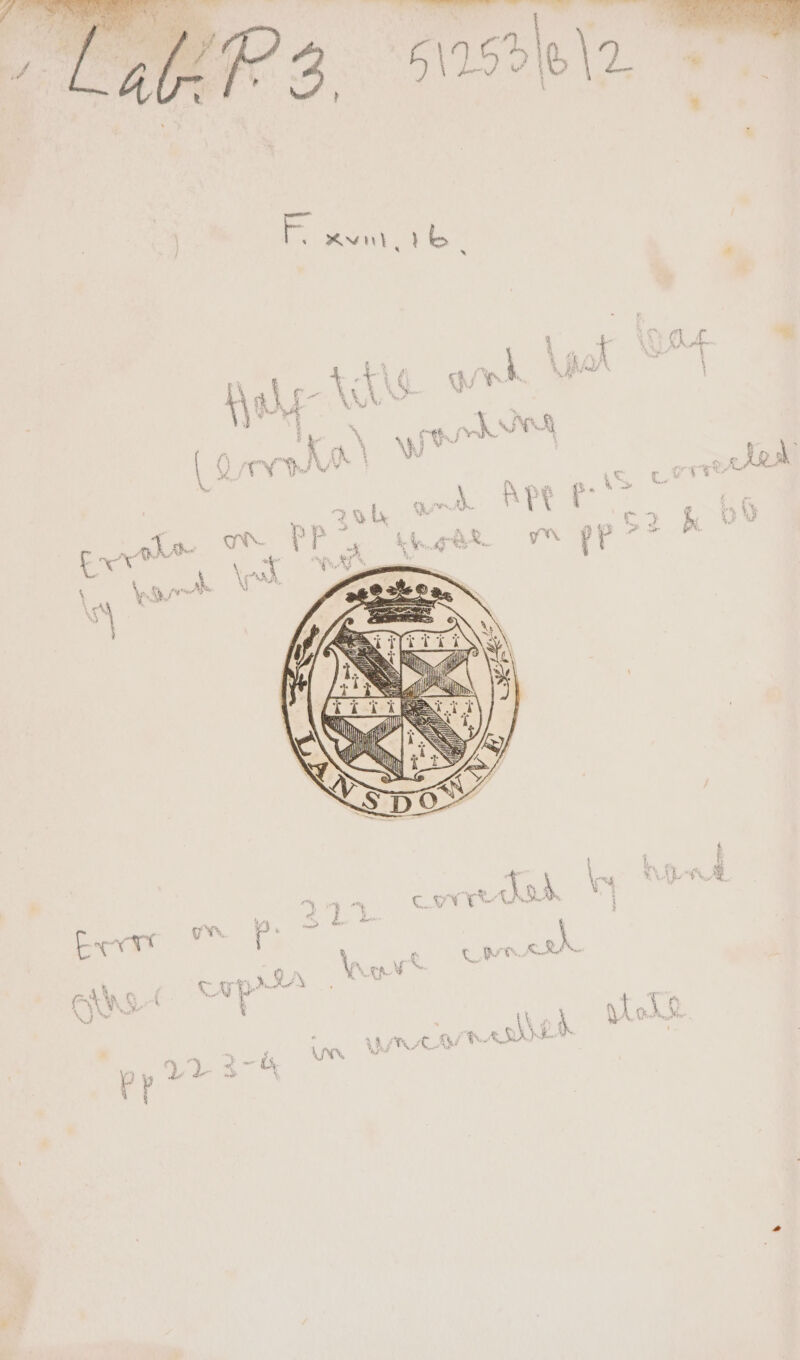 Lab. P. 3. 51253/B/2
F. xviii. 16.
Half-title and last leaf
(errata) wanting
Errata on pp 304 and App p. 15 corrected
by hand but not those on pp 52 & 60
LANSDOWNE
Error on p. 322 corrected by hand
Other copies have cancel
pp 223-4 in uncancelled state